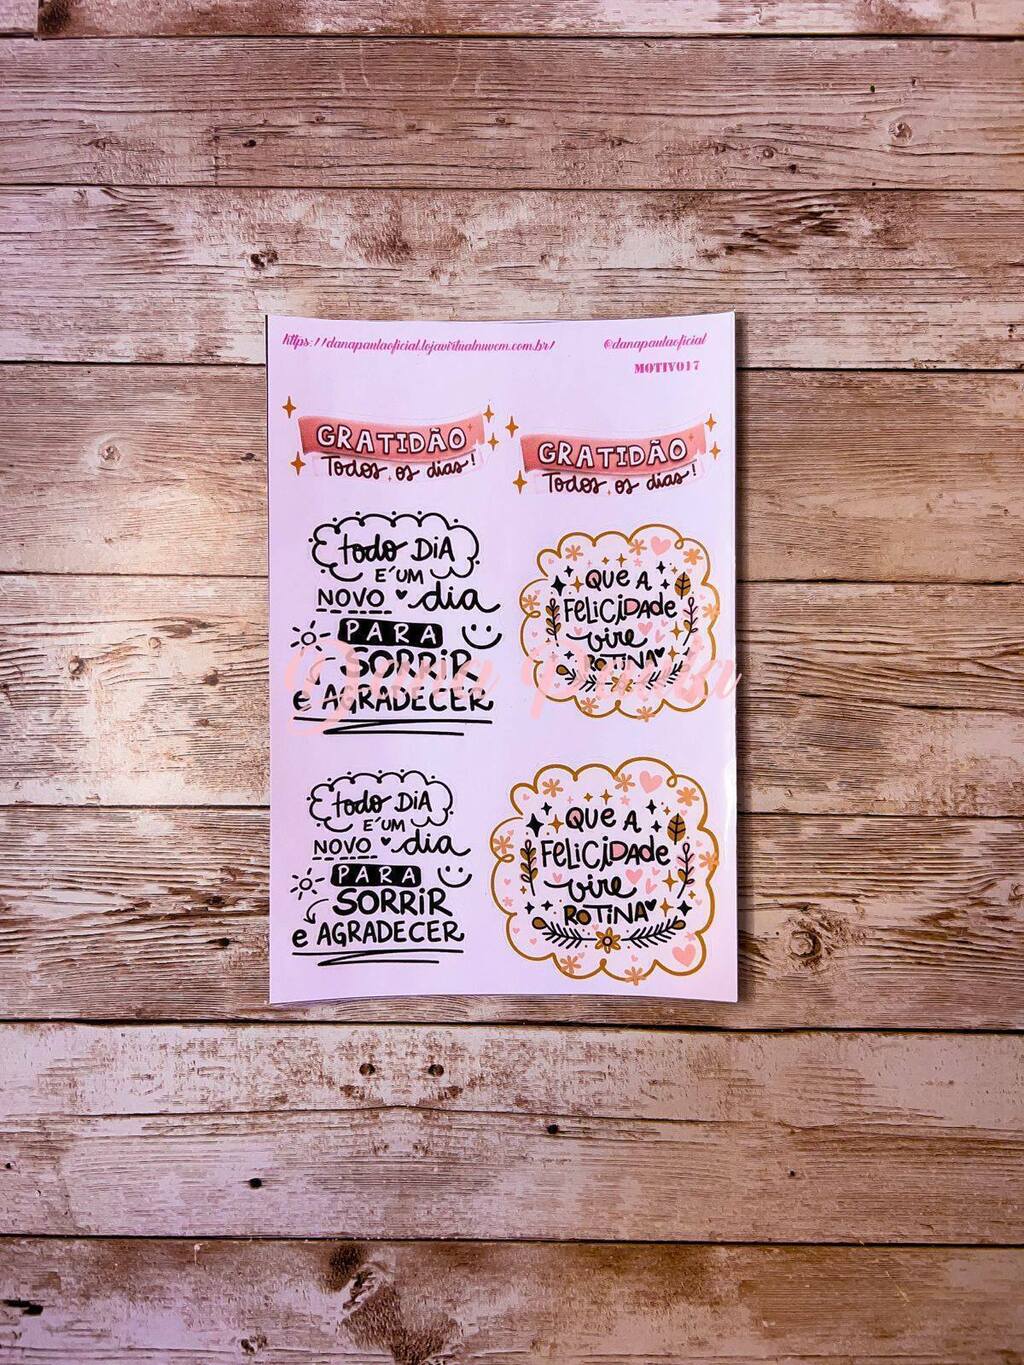 https://danapaulaoficial.lojavirtualnuvem.com.br/
@danapaulaoficial
MOTIVO17
GRATIDÃO
Todos os dias!
GRATIDÃO
Todos os dias!
todo DIA
E´UM
NOVO dia
PARA
SORRIR
e AGRADECER
QUE A
FELICIDADE
vire
ROTINA
Dana Paula
todo DIA
E´UM
NOVO dia
PARA
SORRIR
e AGRADECER
QUE A
FELICIDADE
vire
ROTINA